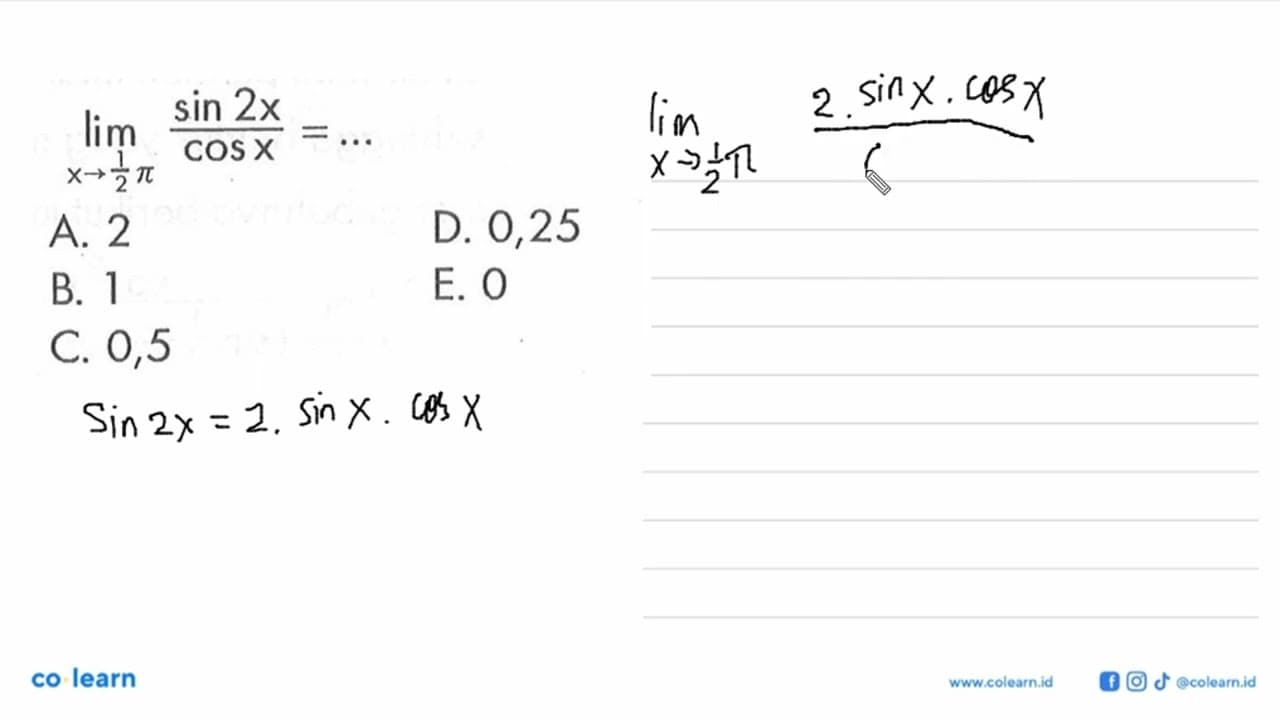 lim x→1/2 π sin 2x / cos x = ...
A. 2
B. 1
C. 0,5
D. 0,25
E. 0
Sin 2x = 2. sin x. cos x
lim x→1/2 π 2. sin x. cos x / (
co·learn
www.colearn.id
@colearn.id